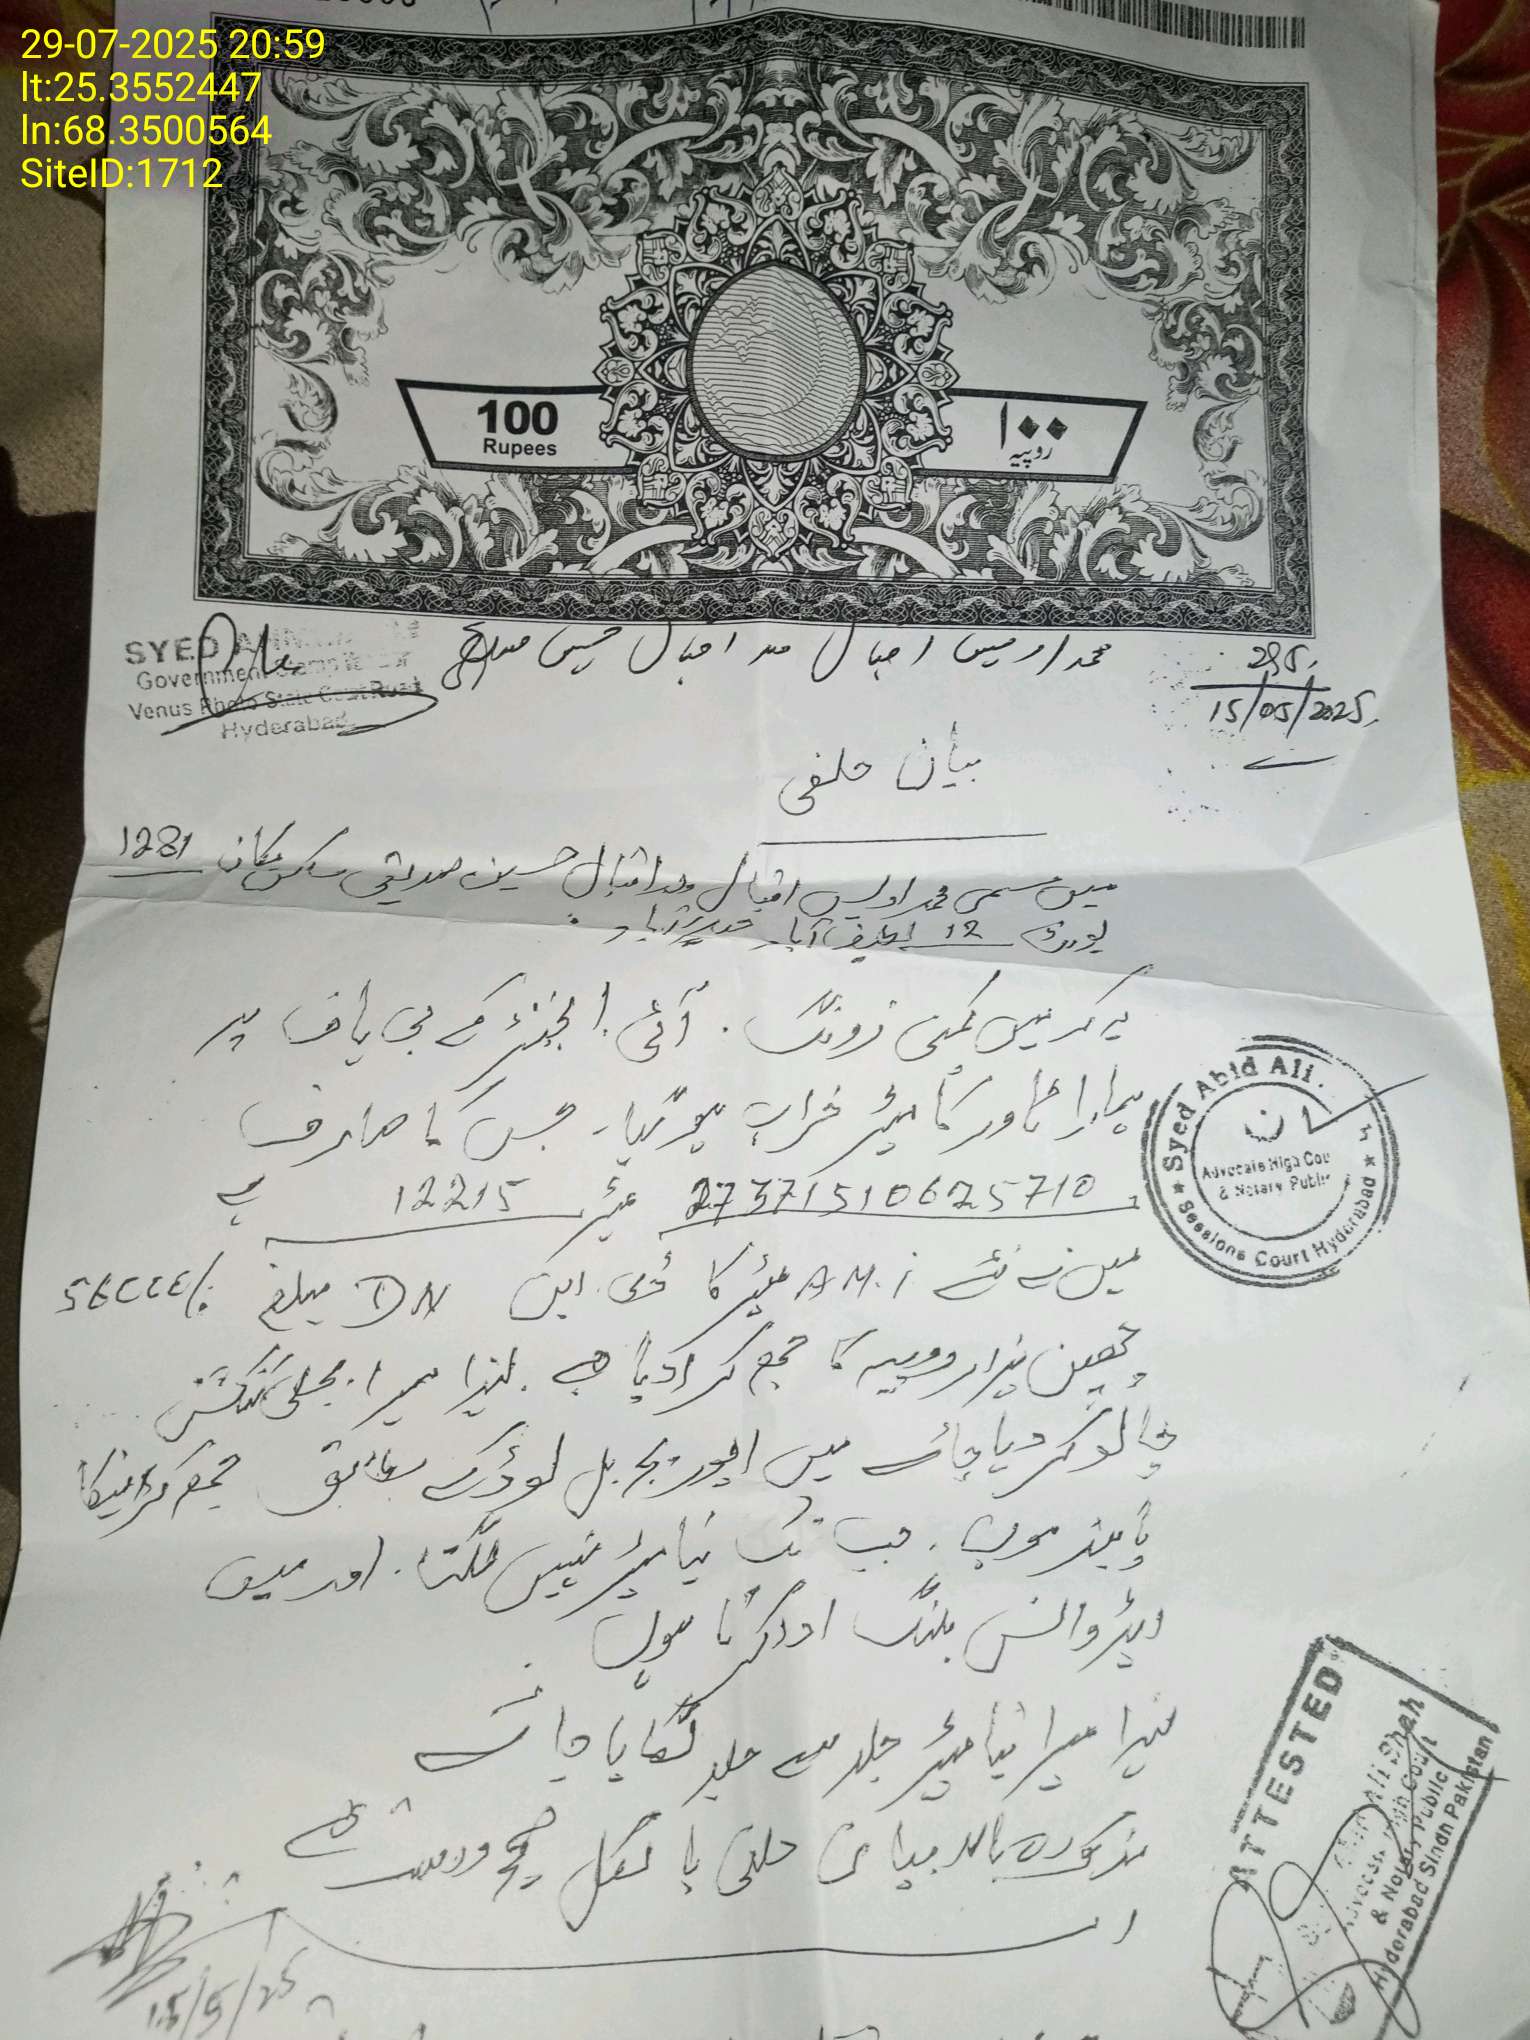 29-07-2025 20:59
lt:25.3552447
ln:68.3500564
SiteID:1712
100
Rupees
۱۰۰
روپیہ
SYED
Government Stamp
Venus Photo State Court Road
Hyderabad
محمد اویس اقبال ولد اقبال حسین صدیقی
295
15/05/2025
بیان حلفی
میں مسمی محمد اویس اقبال ولد اقبال حسین صدیقی ساکن مکان 1281
یونٹ 12 لطیف آباد حیدرآباد.
یہ کہ میں کمپنی زونگ. آئی. انجنئر کے بی ہاف پر
ہمارا ٹاور کا میٹر خراب ہو گیا. جس کا صارف
27371510625710 میٹر 12215 ہے
میں نے نئے A.M.i میٹر کا ڈی. این DN مبلغ
ہزار روپیہ کا جمع کرادیا ہے. لہذا میرا بجلی کنکشن
چالو کر دیا جائے میں ایوریج بل لوڈ کے مطابق جمع کرانیکا
پابند ہوں. جب تک نیا میٹر نہیں لگتا. اور میں
ایڈوانس بلنگ ادا کرتا ہوں
لہذا میرا نیا میٹر جلد سے جلد لگایا جائے
مذکورہ بالا بیان حلفی بالکل صحیح و درست ہے
15/5/25
Syed Abid Ali.
Advocate High Cou
& Notary Public
Sessions Court Hyderabad
ATTESTED
Ali Shah
Advocate High Court
& Notary Public
Hyderabad Sindh Pakistan